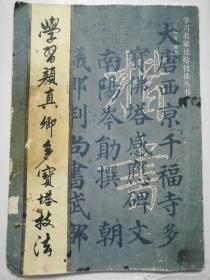 学习名家法贴技法丛书
學習顏真卿多寶塔技法
大唐西京千福寺多
寶佛塔感應碑文
南陽岑勛撰 朝
議郎判尚書武部